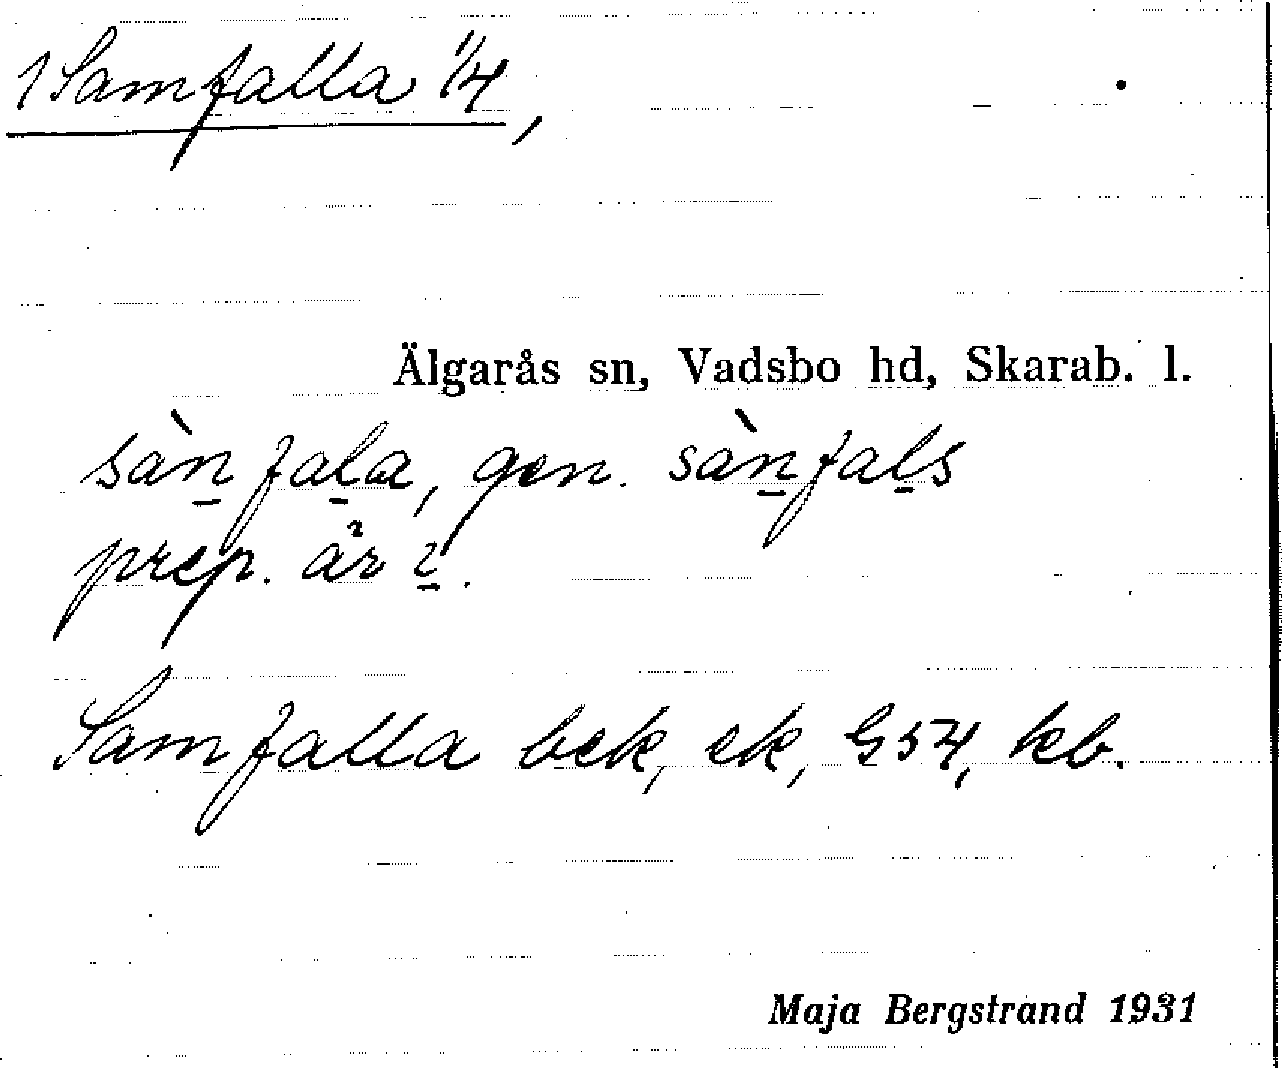 1 Samfalla 1/4,
Älgarås sn, Vadsbo hd, Skarab. l.
sàn̲fal̲a, gen. sàn̲fal̲s
prep. år i̲.
Samfalla bek, ek, G54, kb.
Maja Bergstrand 1931